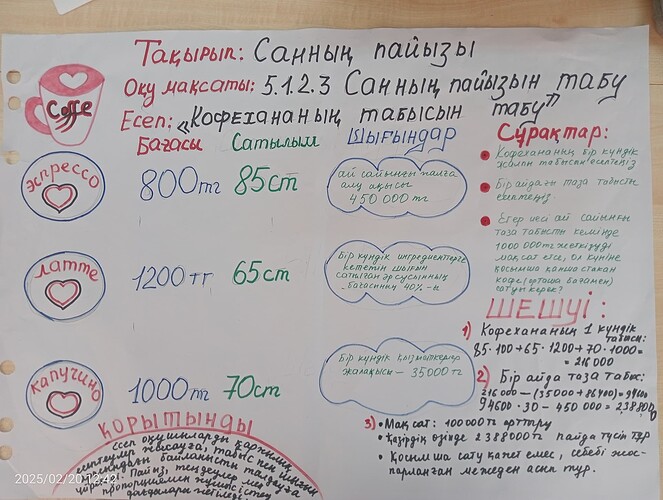 Тақырып: Санның пайызы
Оқу мақсаты: 5.1.2.3 Санның пайызын табу
Есеп: „Кофехананың табысын табу"
Coffe
Бағасы Сатылым Шығындар
эспрессо
800тг 85ст
ай сайынғы палга
алу ақысы
450 000 тг
латте
1200 тг 65ст
Бір күндік ингредиенттерге
кететін шығын
сатылған әр сусынның
бағасының 40%-ы
капучино
1000тг 70ст
Бір күндік қызметкерлер
жалақысы – 35000 тг
Сұрақтар:
Кофехананың бір күндік
жалпы табысын есептеңіз
Бір айдағы таза табысты
есептеңіз
Егер иесі ай сайынғы
таза табысты кемінде
1000 000тг жеткізуді
мақсат етсе, ол күніне
қосымша қанша стакан
кофе (орташа бағамен)
сатуы керек?
ШЕШУІ:
1) Кофехананың 1 күндік
табысы:
85·100+65·1200+70·1000=
=216 000
2) Бір айда таза табыс:
216000 – (35000 + 86400) = 94600
94600 · 30 – 450 000 = 238800
3) • Мақсат: 100000 тг арттыру
• Қазіргің өзінде 2388000 тг пайда түсіп тұр
• Қосымша сату қажет емес, себебі жос-
парланған межеден асып тұр.
ҚОРЫТЫНДЫ
есеп оқушыларды қаржылық
есептеулер жасауға, табыс пен шығын
арасындағы байланысты талдауға
үйретеді. Пайыз, теңдеулер мен
пропорциямен жұмыс істеу
дағдылары негізінде
2025/02/20 12:42